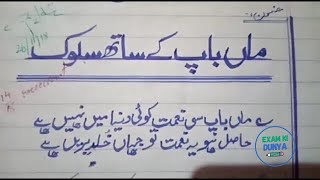 ماں باپ کے ساتھ سلوک
ماں باپ سی نعمت کوئی دنیا میں نہیں ہے
حاصل ہو یہ نعمت تو جہاں خلد بریں ہے
EXAM KI
DUNYA